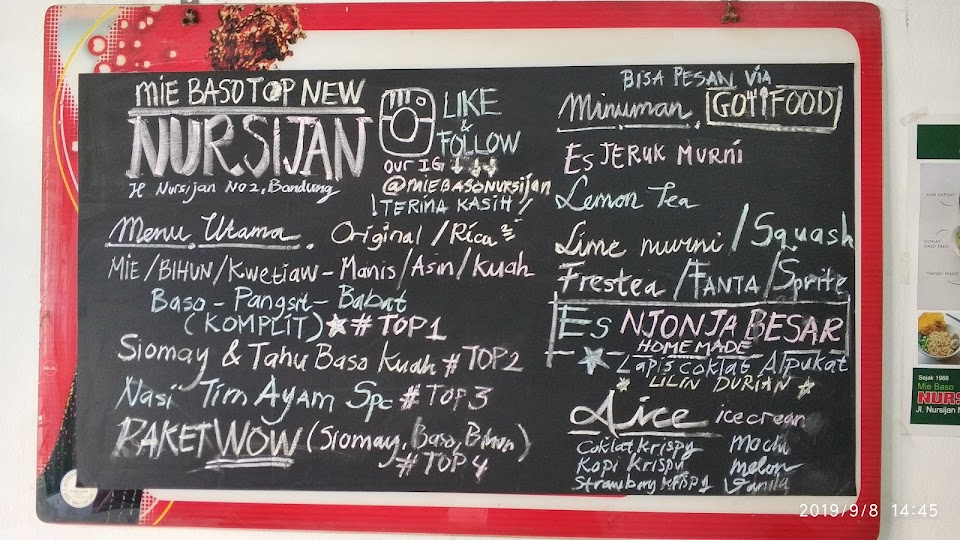 MIE BASO TOP NEW
NURSIJAN
Jl Nursijan No 2, Bandung
LIKE
&
FOLLOW
OUR IG
@MIEBASONURSIJAN
! TERIMA KASIH !
Menu Utama. Original / Rica²
MIE/BIHUN/Kwetiaw - Manis/Asin/Kuah
Baso - Pangsit - Babat
(KOMPLIT) # TOP 1
Siomay & Tahu Baso Kuah # TOP 2
Nasi Tim Ayam Spc # TOP 3
PAKET WOW (Siomay, Baso, Bihun)
# TOP 4
BISA PESAN VIA
Minuman. GO FOOD
Es JERUK MURNI
Lemon Tea
Lime murni / Squash
Frestea / FANTA / Sprite
Es NJONJA BESAR
HOME MADE
Lapis coklat Alpukat
LILIN DURIAN
Aice ice cream
Coklat krispy Mochi
Kopi Krispy Melon
Strawbery KRISPI Vanila
Sejak 1968
Mie Baso
NURS
Jl. Nursijan N
2019/9/8 14:45